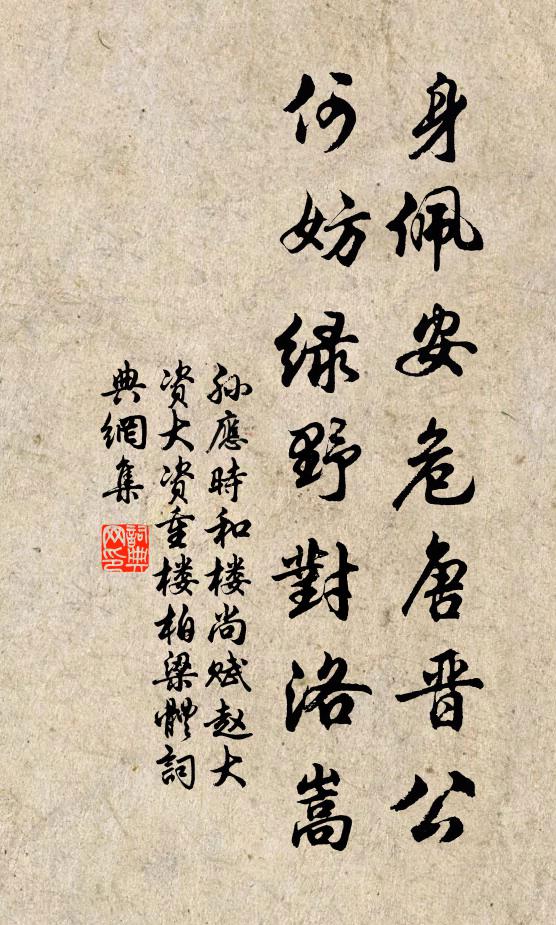 身佩安危唐晋公
何妨绿野對洛嵩
孫應時和楼尚赋赵大
资大资重楼柏梁體詞
典網集
詞典网印